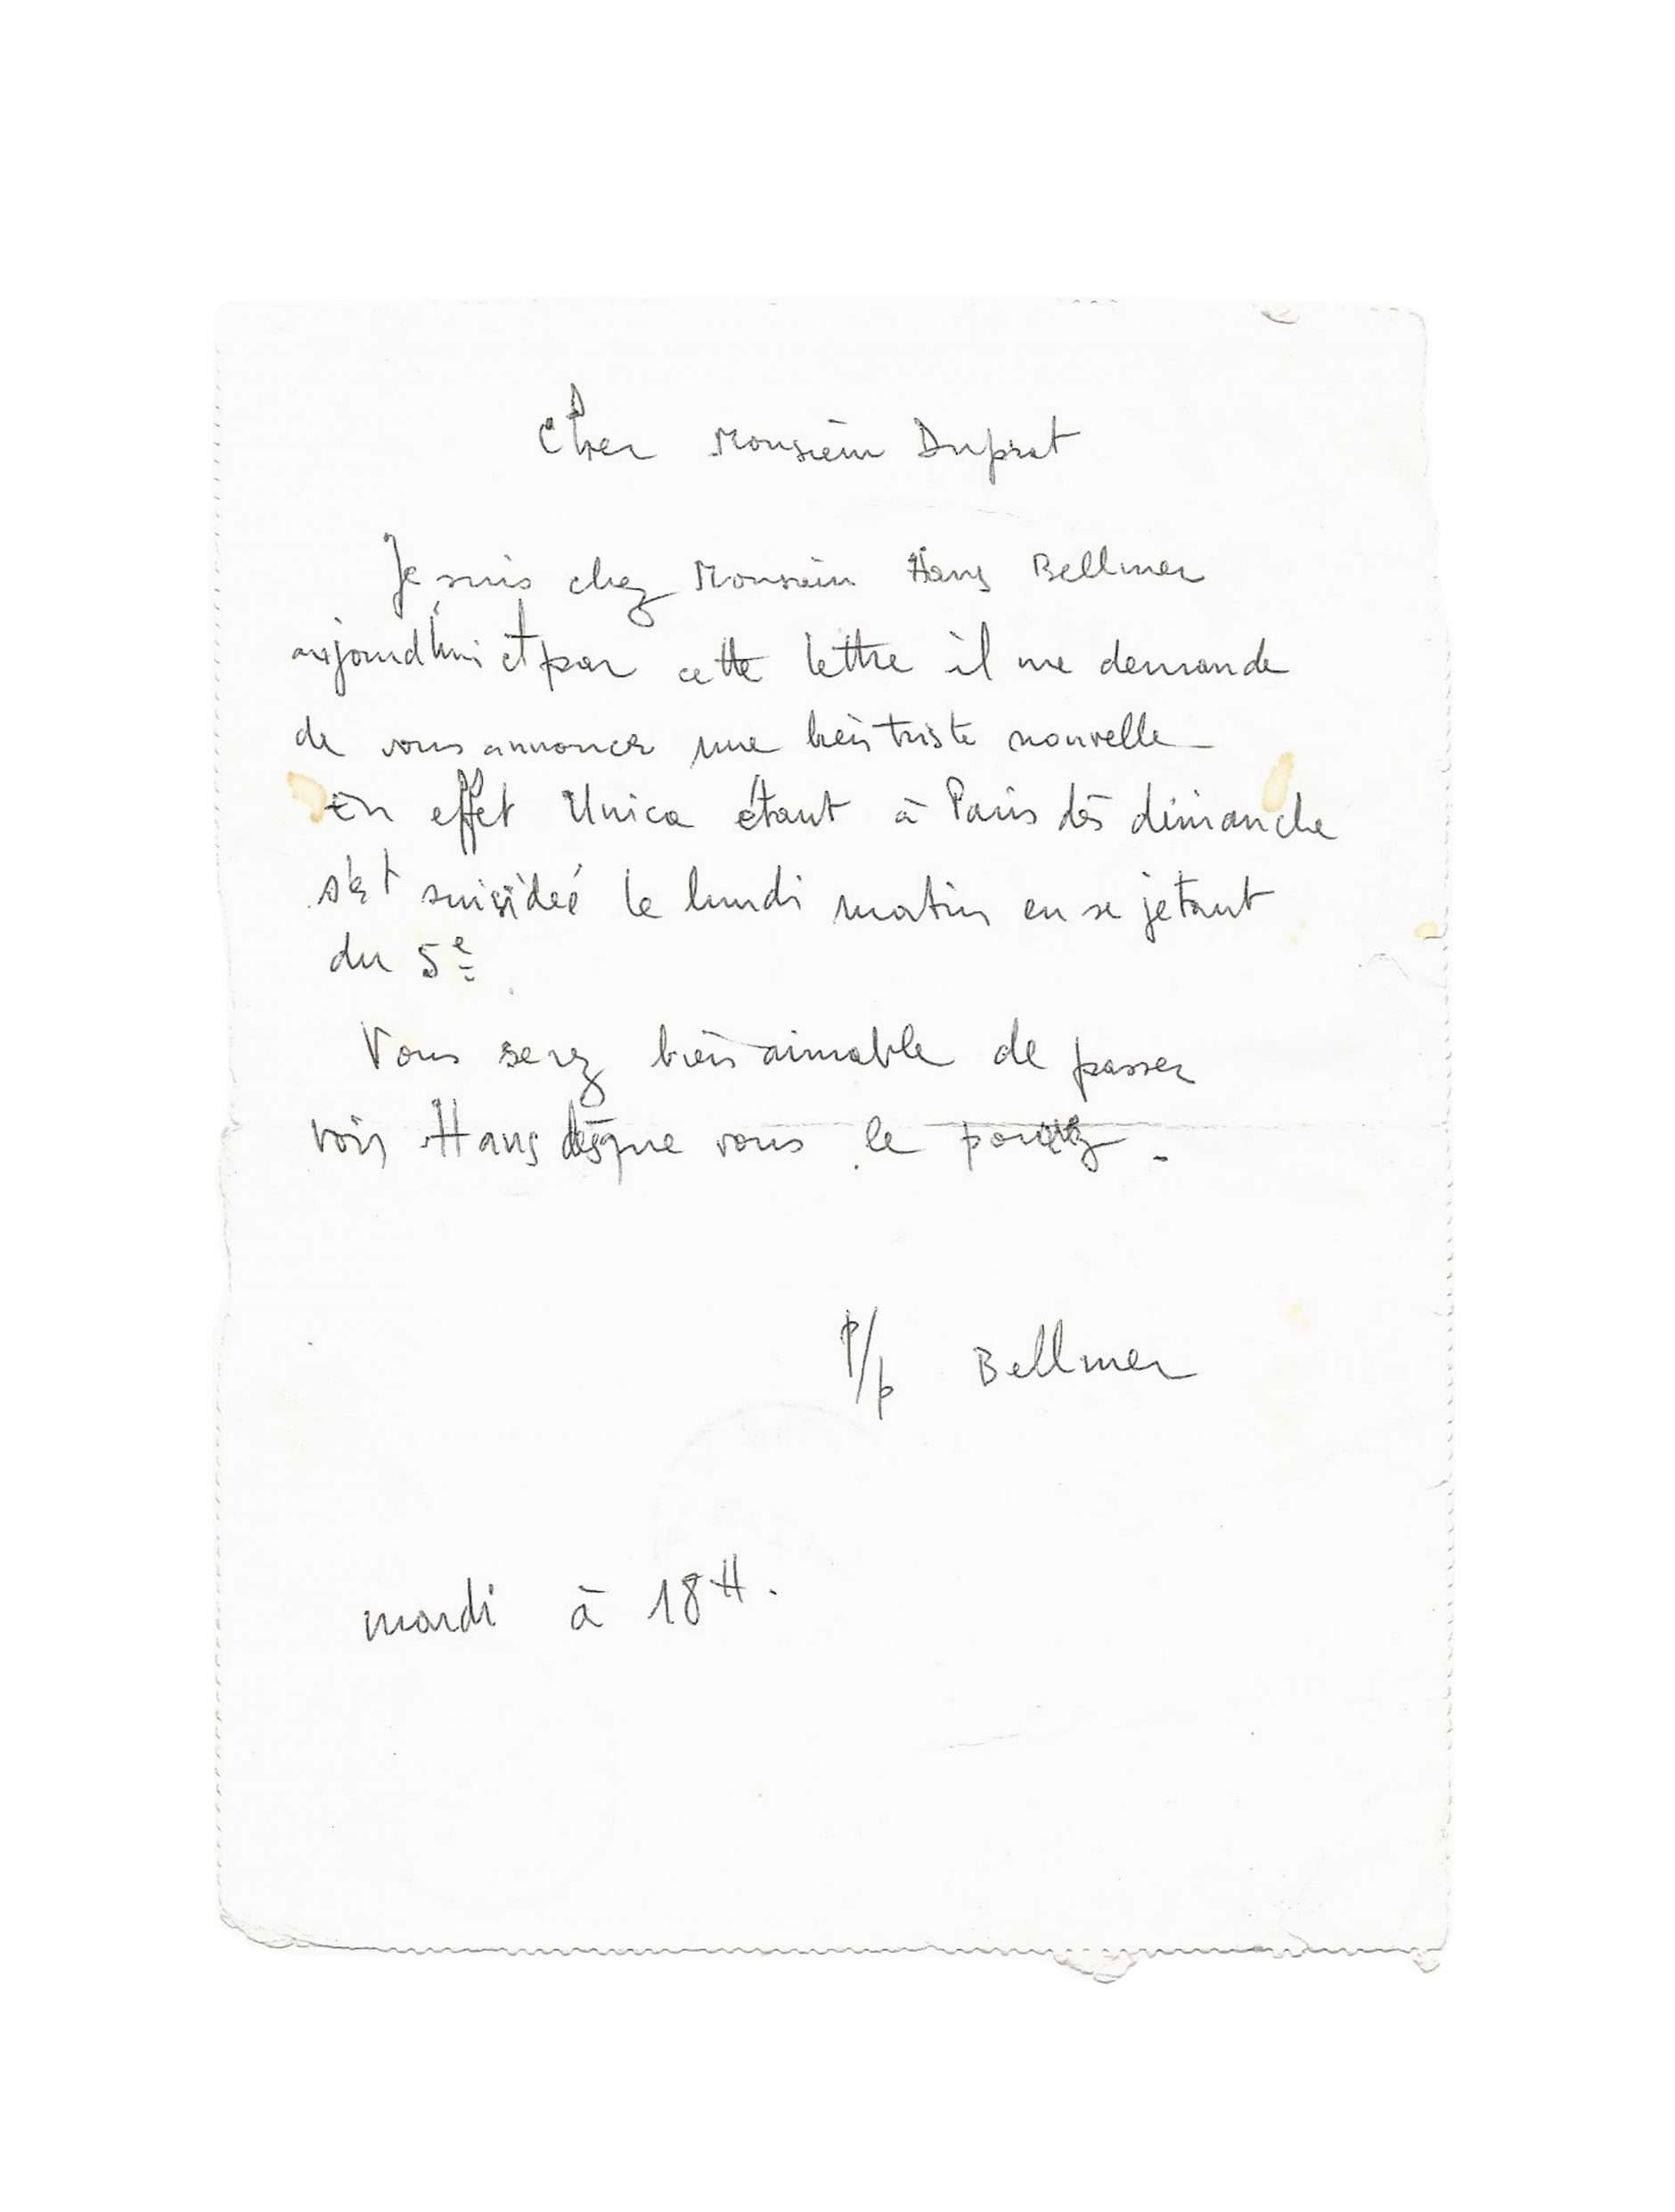 Cher Monsieur Duprat
Je suis chez Monsieur Hans Bellmer
aujourd'hui et par cette lettre il me demande
de vous annoncer une bien triste nouvelle
En effet Unica étant à Paris dès dimanche
s'est suicidée le lundi matin en se jetant
du 5e
Vous serez bien aimable de passer
voir Hans dès que vous le pouvez.
P/p Bellmer
mardi à 18H.